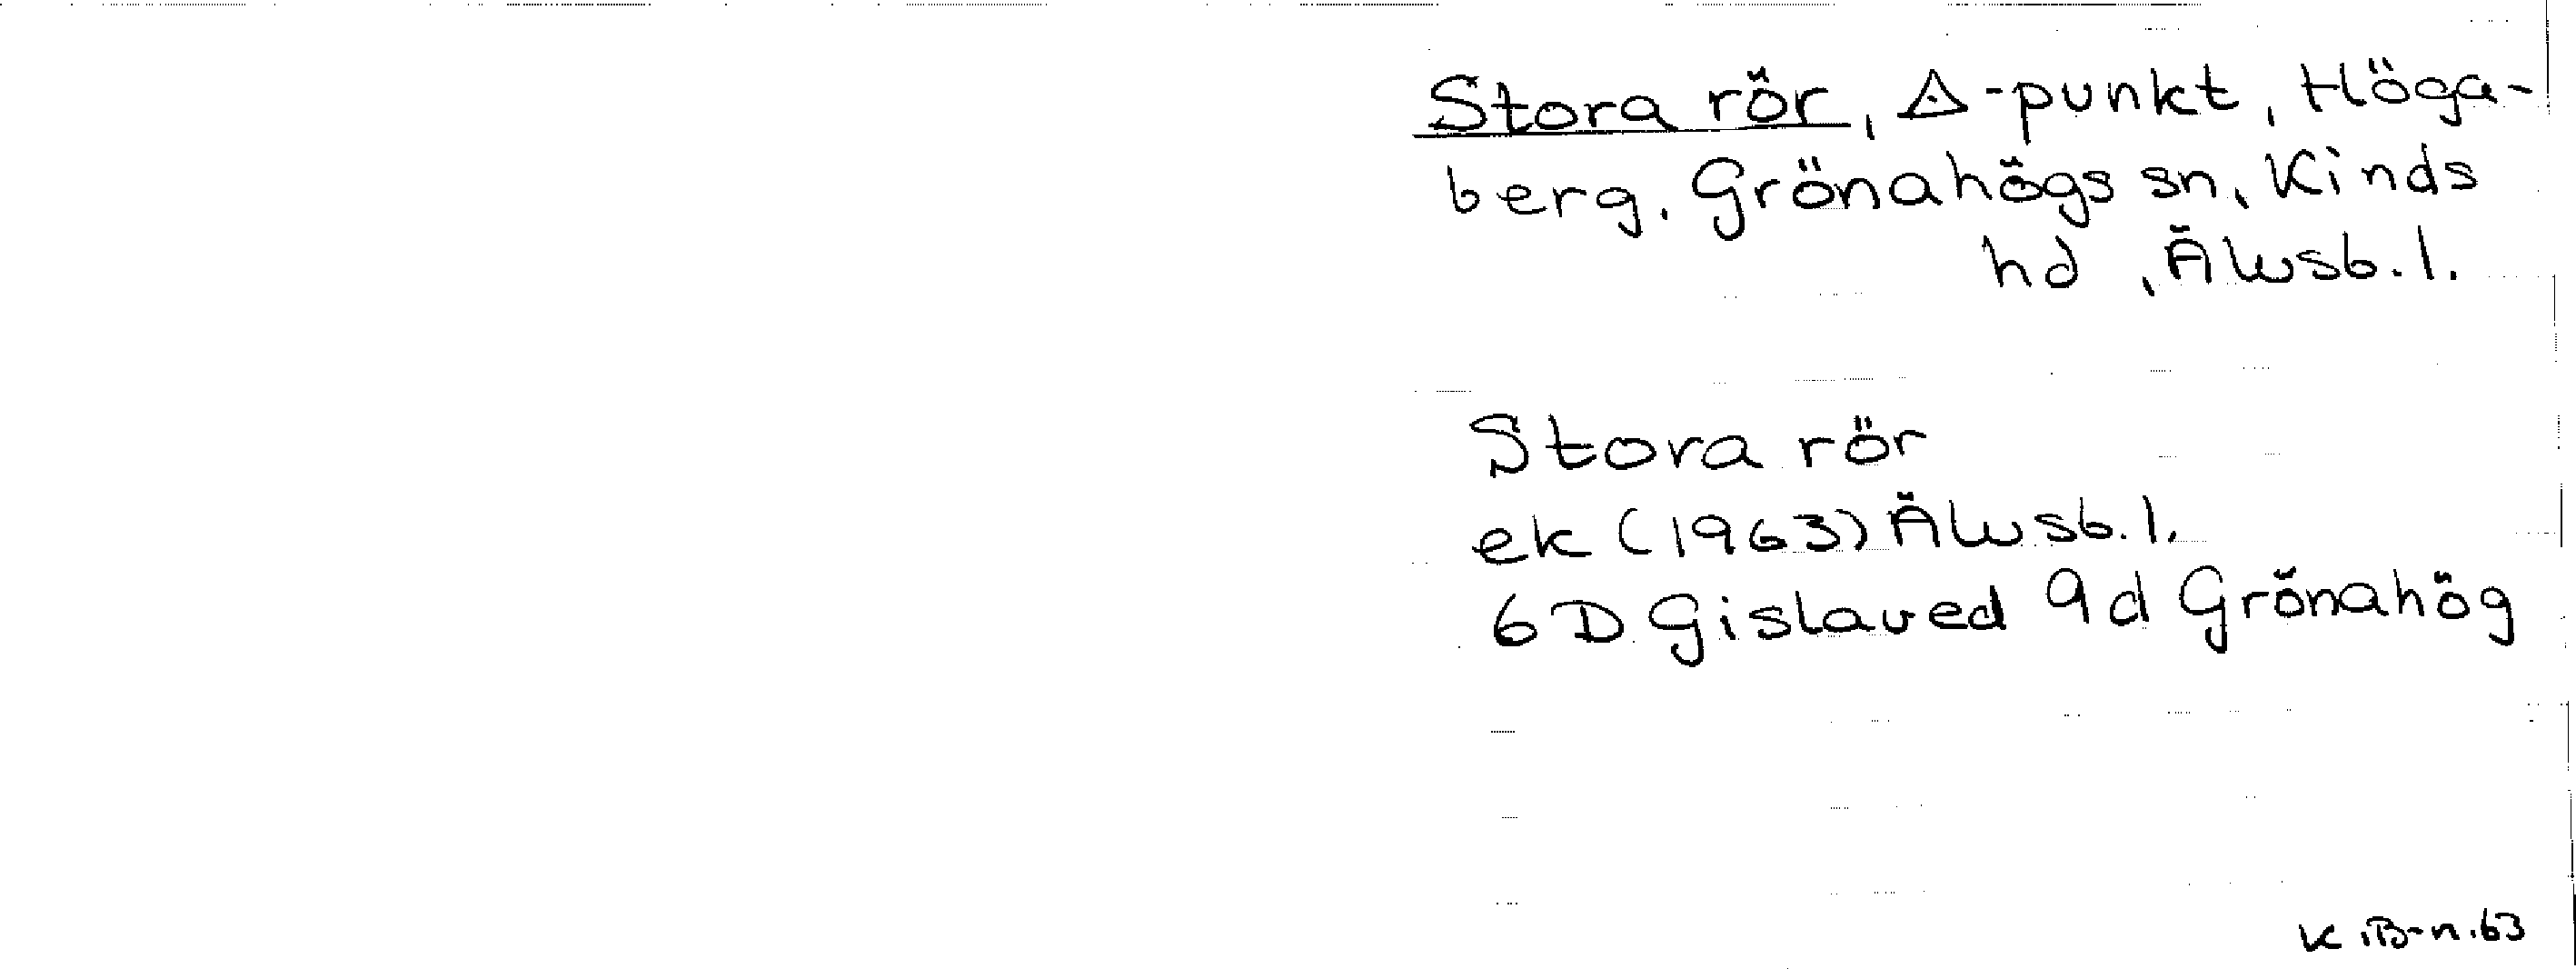 Stora rör, ∆-punkt, Höga-
berg, Grönahögs sn, Kinds
hd, Älvsb.l.
Stora rör
ek (1963) Älvsb.l.
6D Gislaved 9d Grönahög
K.B-n.63